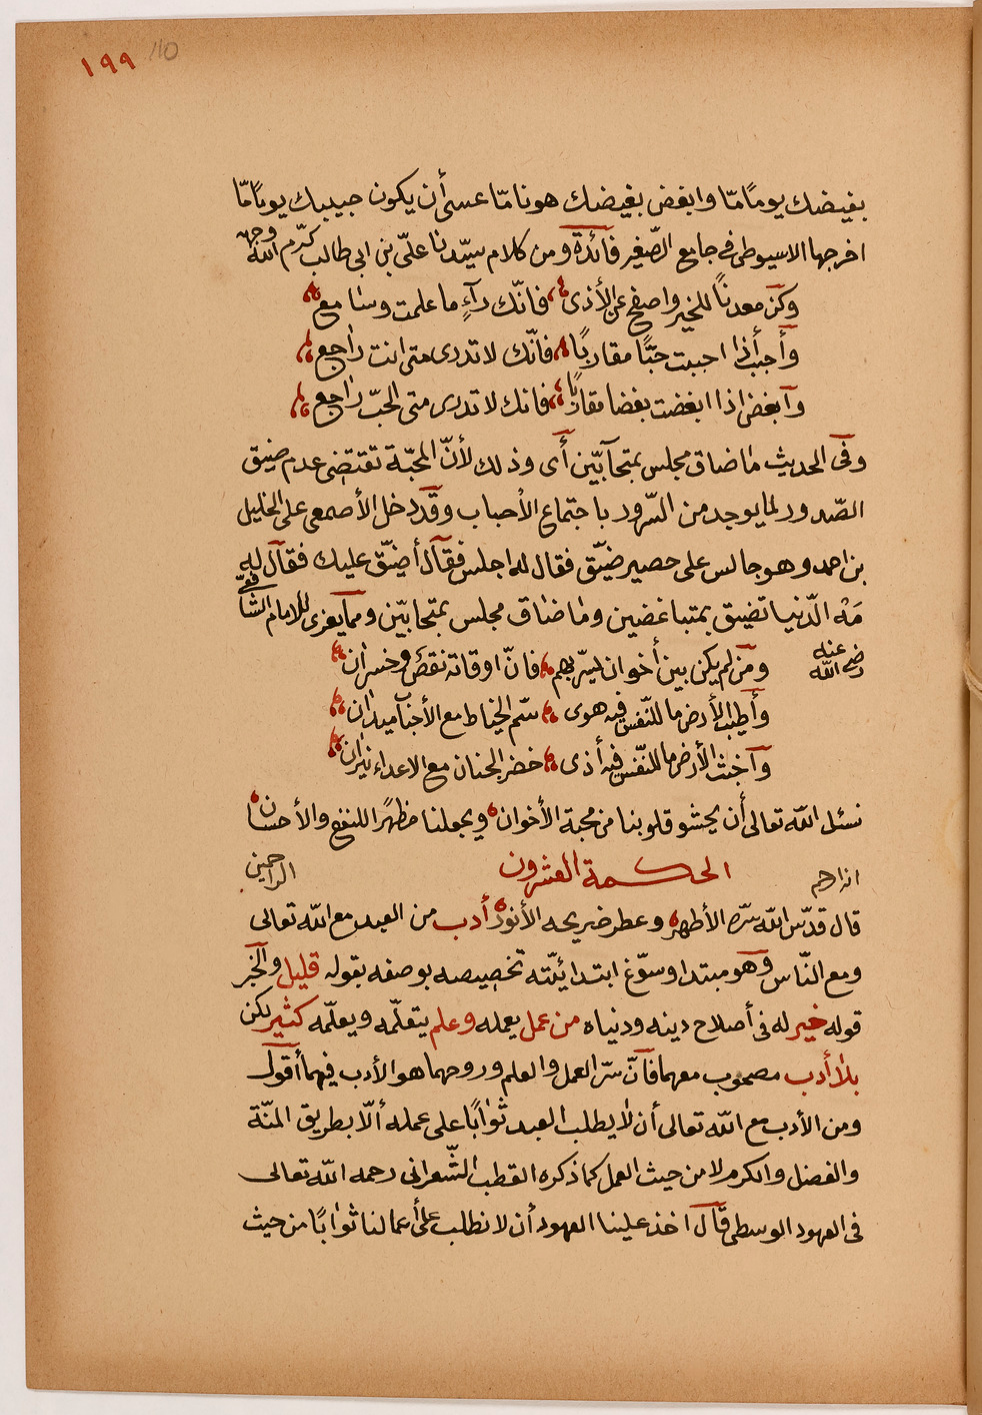 ١٩٩ 110
بغيضك يومًامّا وابغض بغيضك هونامّا عسى أن يكون حبيبك يومًامّا
اخرجها الاسيوطى فى جامع الصّغير فائدة ومن كلام سيّدنا علىّ بن ابى طالب كرّم الله وجهه
وكن معدنًا للخير واصفح عن الأذى فانّك رآءٍ ما علمت وسامع
وأحبب اذا احببت حبًّا مقاربًا فانّك لا تدرى متى انت راجع
وآبغض اذا ابغضت بغضا مقاربًا فانك لا تدرى متى الحبّ راجع
وفى الحديث ماضاق مجلس بمتحآبّين أى وذلك لأنّ المحبّة تقتضى عدم ضيق
الصّدور لما يوجد من السّرور باجتماع الأحباب وقد دخل الأصمعى على الخليل
بن احمد وهو جالس على حصير ضيّق فقال له اجلس فقال أضيّق عليك فقال له
مَهْ الدّنيا تضيق بمتباغضين وماضاق مجلس بمتحابّين ومما يعزى للامام الشافعىّ
رضى الله عنه
ومن لم يكن بين أخوان يسرّ بهم فانّ اوقاته نقص وخسران
وأطيب الأرض ما للنّفس فيه هوى سمّ الخياط مع الأحباب ميدان
وآخبث الأرض ما للنّفس فيه أذى خضر الجنان مع الاعداء نيران
نسئل الله تعالى أن يحشو قلوبنا من محبة الأخوان ويجعلنا مظهرًا للنفع والأحسان
انه ارحم الراحمين
الحكمة العشرون
قال قدّس الله سرّه الأطهر وعطر ضريحه الأنور أدب من العبد مع الله تعالى
ومع النّاس وهو مبتدا وسوّغ ابتدائيّته تخصيصه بوصفه بقوله قليل والخبر
قوله خير له فى أصلاح دينه ودنياه من عمل يعمله وعلم يتعلّمه ويعلّمه كثير لكن
بلا أدب مصحوب معهما فآنّ سرّ العمل والعلم وروحهما هو الأدب فيهما أقول
ومن الأدب مع الله تعالى أن لا يطلب العبد ثوابًا على عمله ألّا بطريق المنّة
والفضل والكرم لا من حيث العمل كما ذكره القطب الشّعرانى رحمه الله تعالى
فى العهود الوسطى قال اخذ علينا العهود أن لا نطلب على أعمالنا ثوابًا من حيث